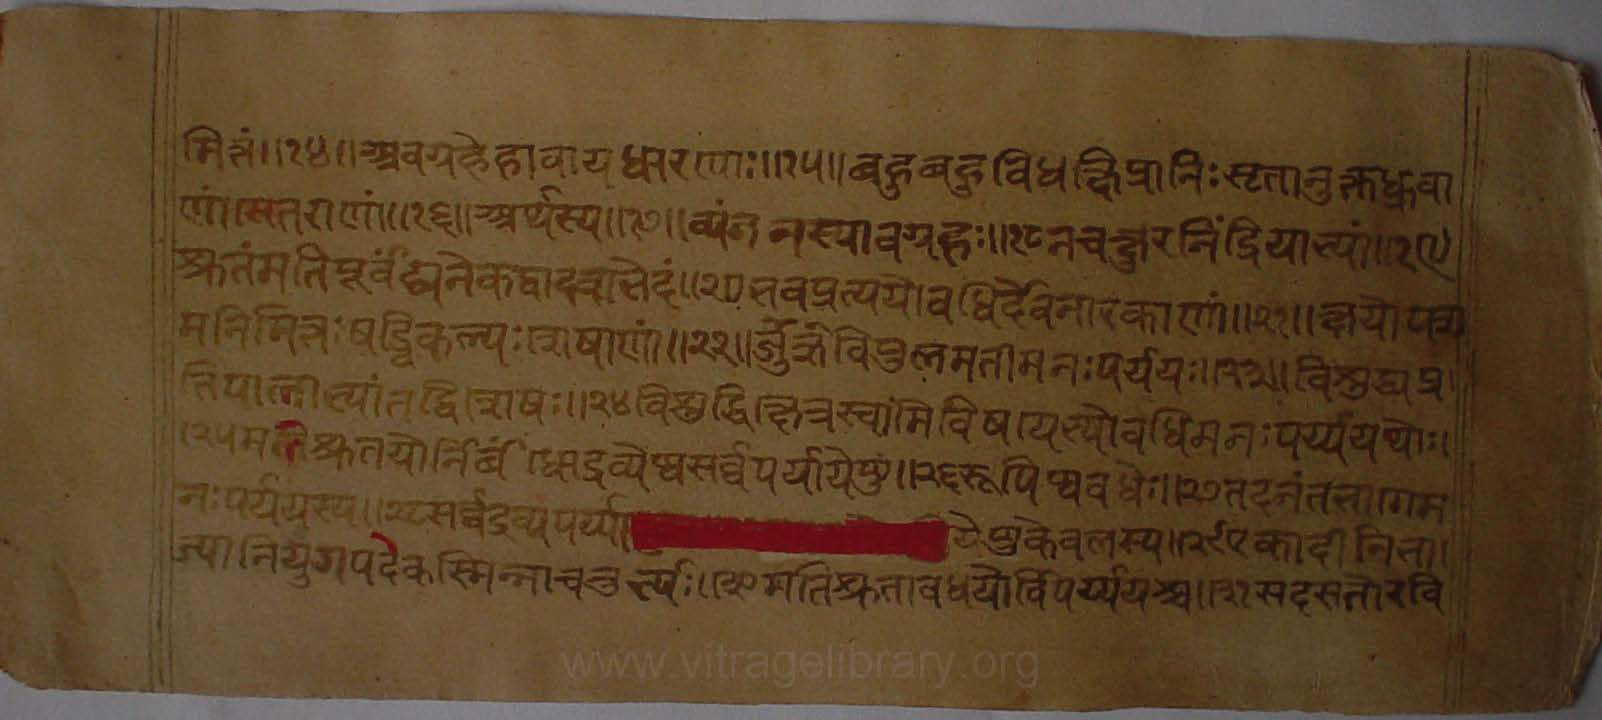 मित्तं।।१४।।अवग्रहेहावायधारणाः।।१५।।बहुबहुविधक्षिप्रानिःसृतानुक्तध्रुवा
णां।सेतराणां।।१६।।अर्थस्य।।१७।।व्यंजनस्यावग्रहः।।१८नचक्षुरनिंद्रियाभ्यां।।१९
श्रुतंमतिपूर्वंद्व्यनेकद्वादशभेदं।।२०भवप्रत्ययोवधिर्देवनारकाणां।।२१।।क्षयोपश
मनिमित्तःषड्विकल्पःशेषाणां।।२२।।विपुलमतीमनःपर्ययः।।२३।।विशुद्ध्यप्र
तिपाताभ्यांतद्विशेषः।।२४विशुद्धिक्षेत्रस्वामिविषयेभ्योवधिमनःपर्य्यययोः।
।२५मतिश्रुतयोर्निबंधोद्रव्येष्वसर्व्वपर्यायेषु।।२६रूपिष्ववधेः।।२७तदनंतभागेम
नःपर्ययस्य।।२८सर्वद्रव्यपर्य्या येषुकेवलस्य।।२९एकादीनिभा।
ज्यानियुगपदेकस्मिन्नाचतुर्भ्यः।।३०मतिश्रुतावधयोर्विपर्य्ययश्च।।३१सदसतोरवि
www.vitragelibrary.org